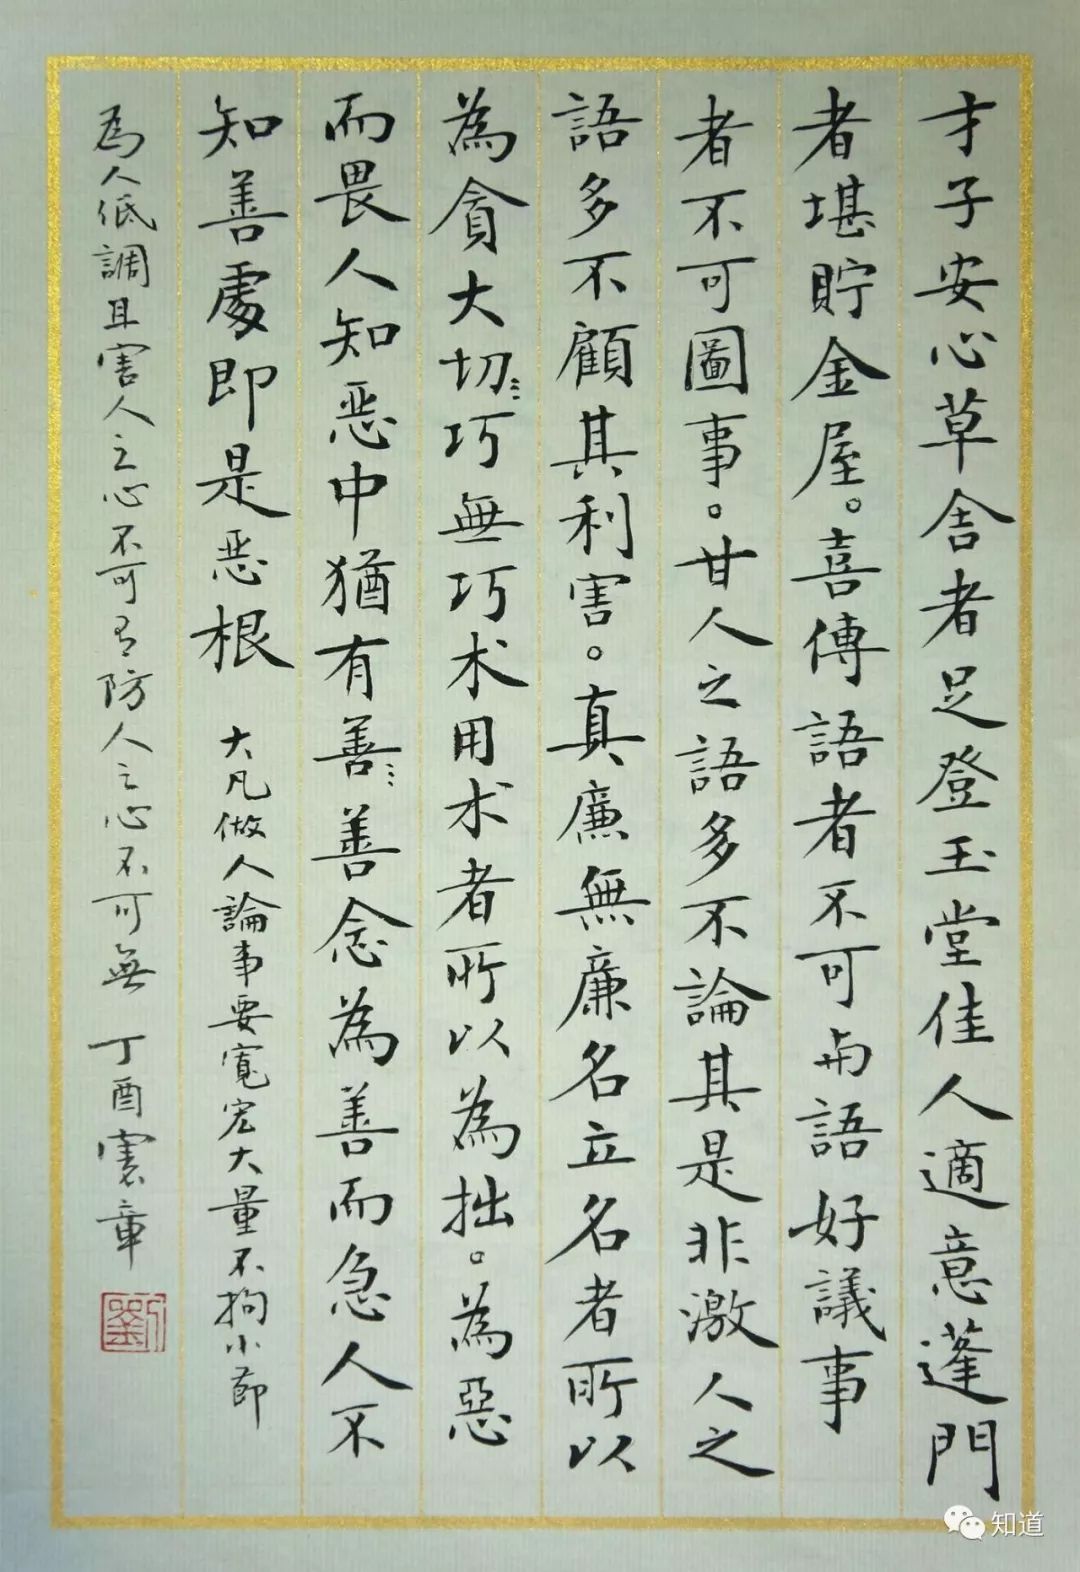 才子安心草舍者足登玉堂佳人適意蓬門
者堪貯金屋。喜傳語者不可与語好議事
者不可圖事。甘人之語多不論其是非激人之
語多不顧其利害。真廉無廉名立名者所以
為貪大切〻巧無巧术用术者所以為拙。為惡
而畏人知恶中猶有善〻善念為善而急人不
知善處即是恶根 大凡做人論事要寬宏大量不拘小節
為人低調且害人之心不可有防人之心不可無 丁酉 憲章
劉
知道